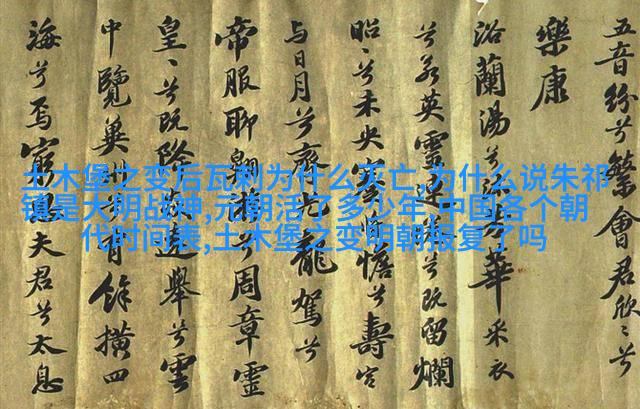 五音紛兮繁會君欣〻兮
樂康
浴蘭湯兮華采衣
兮若英靈連兮既留爛
昭〻兮未央憺兮壽宮
与日月兮齊龍駕兮
帝服聊翱兮周章靈
皇〻兮既降遠舉兮雲
中覽冀有餘橫四
海兮焉窮夫君兮太息
土木堡之变后瓦剌为什么灭亡,为什么说朱祁
镇是大明战神,元朝活了多少年,中国各个朝
代时间表,土木堡之变明朝报复了吗